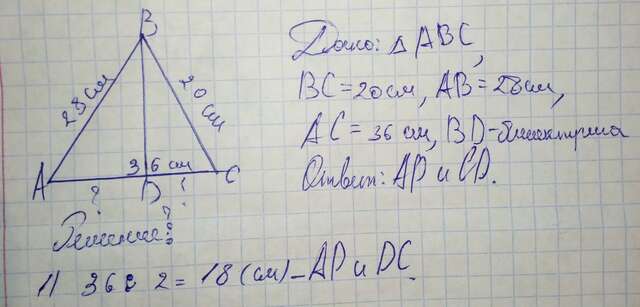 B
Дано: △ ABC,
28 см
20 см
BC = 20см, AB = 28см,
AC = 36 см, BD-биссектриса
36 см
A
D
C
? ?
Ответ: AD и CD.
Решение:
1) 36 : 2 = 18 (см) – AD и DC